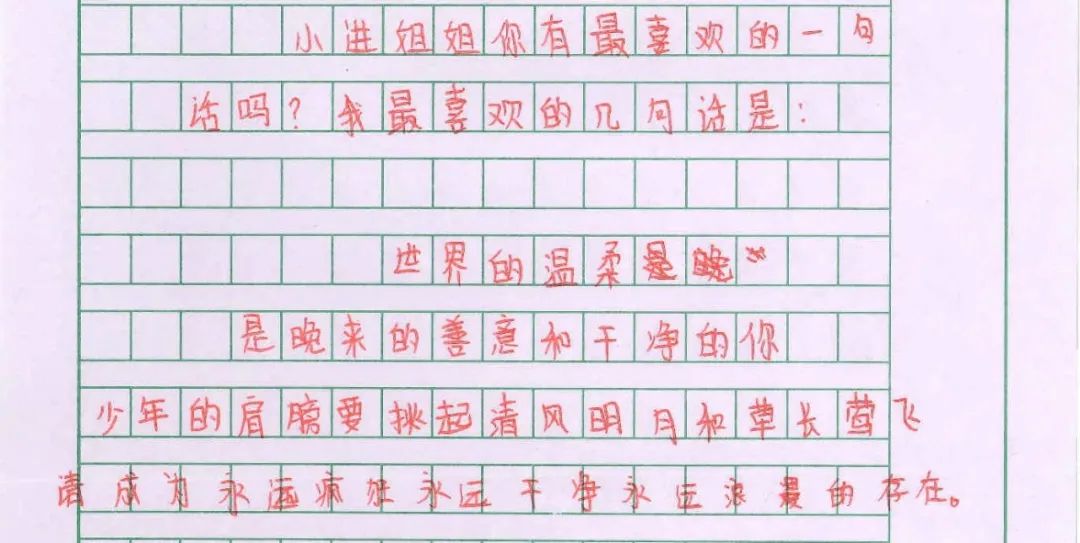 小进姐姐你有最喜欢的一句
话吗？我最喜欢的几句话是：
世界的温柔是晚
是晚来的善意和干净的你
少年的肩膀要挑起清风明月和草长莺飞
请成为永远疯狂永远干净永远浪最的存在。